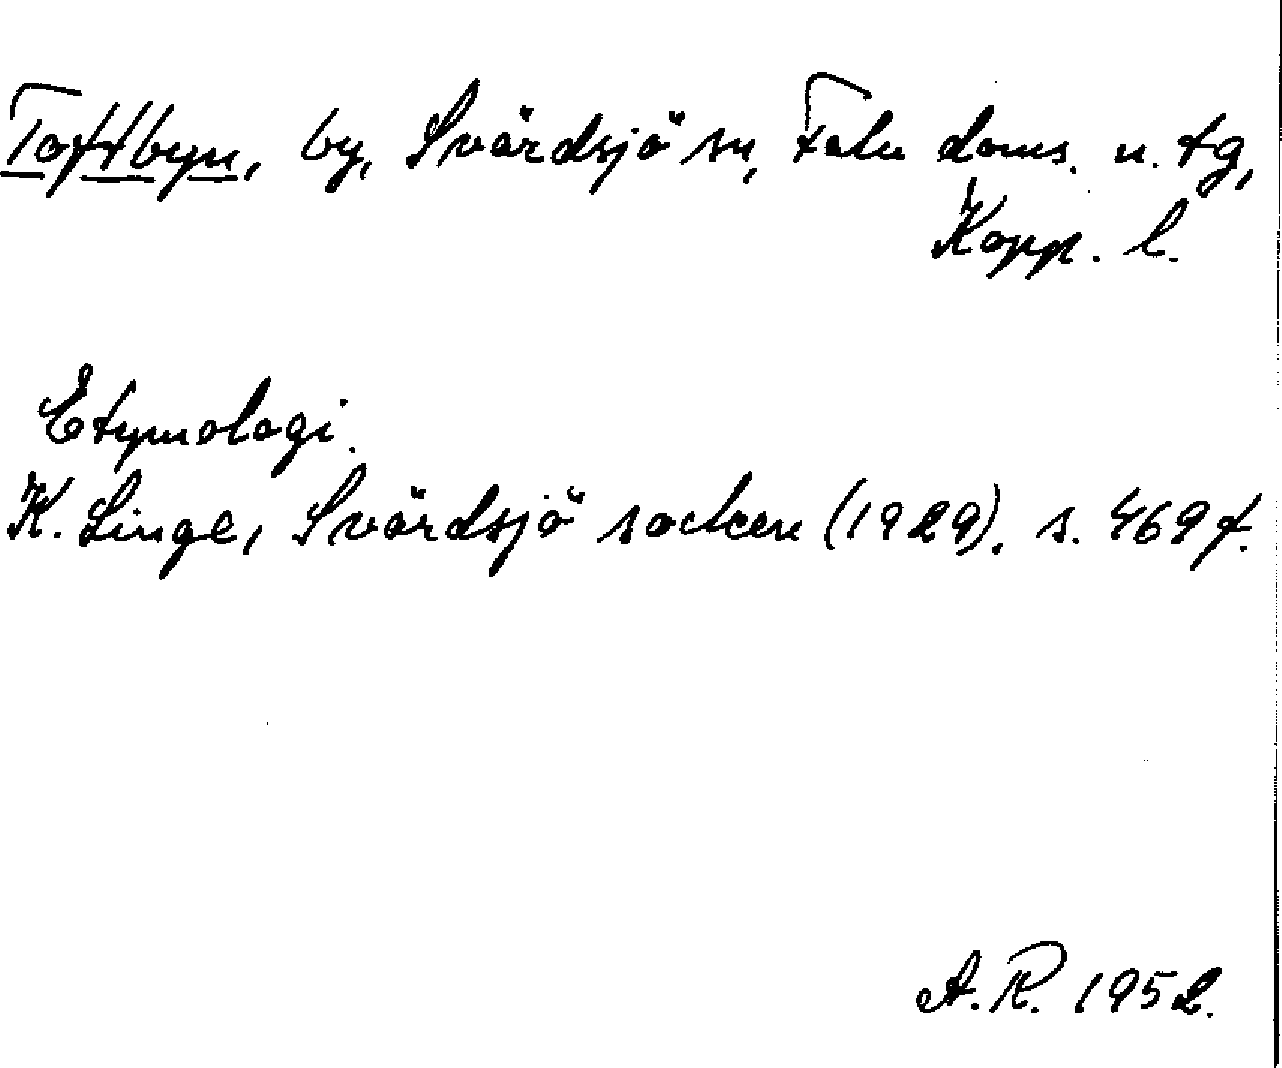 Toftbyn, by, Svärdsjö sn, Falu doms. n. tg,
Kopp. l.
Etymologi.
K. Linge, Svärdsjö socken (1929). s. 469 f.
A. R. 1952.